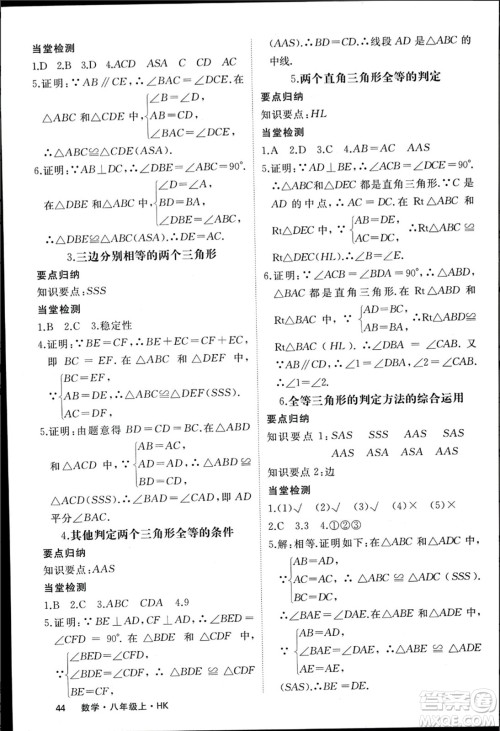 当堂检测
1.D 2.B 3.ASA CD AC CD
5.证明：∵AB∥CE，∴∠BAC=∠DCE.
在△ABC和△CDE中，∵
∠B=∠D，
AB=CD，
∠BAC=∠DCE，
∴△ABC≌△CDE(ASA).
6.证明：∵AB⊥DC，∴∠DBE=∠ABC=90°.
在△DBE和△ABC中，∵
∠D=∠A，
BD=BA，
∠DBE=∠ABC，
∴△DBE≌△ABC(ASA). ∴DE=AC.
3.三边分别相等的两个三角形
要点归纳
知识要点：SSS
当堂检测
1.B 2.C 3.稳定性
4.证明：∵BE=CF，∴BE+CE=CF+EC，
即BC=EF. 在△ABC和△DEF中，
∵
AB=DE，
BC=EF，
AC=DF，
∴△ABC≌△DEF(SSS).
5.证明：由题意得BD=CD. 在△ABD和
△ACD中，∵
AB=AC，
BD=CD，
AD=AD，
∴△ABD≌
△ACD(SSS). ∴∠BAD=∠CAD. ∴AD
平分∠BAC.
4.其他判定两个三角形全等的条件
要点归纳
知识要点：AAS
当堂检测
1.B 2.C 3.ABC CDA 4.9
5.证明：∵BE⊥AD，CF⊥AD，∴∠BED=
∠CFD=90°. 在△BDE和△CDF中，
∵
∠BED=∠CFD，
∠BDE=∠CDF，
BE=CF，
∴△BDE≌△CDF
(AAS). ∴BD=CD. ∴线段AD是△ABC的
中线.
5.两个直角三角形全等的判定
要点归纳
知识要点：HL
当堂检测
1.A 2.B 3.C 4.AB=AC
5.证明：∵AD⊥DE，BE⊥DE，∴∠D=∠E=
90°. ∴△ADC和△BEC都是直角三角形. ∵C是
DE的中点，∴DC=EC. 在Rt△ADC和
Rt△BEC中，∵
AC=BC，
DC=EC，
∴Rt△ADC≌
Rt△BEC(HL). ∴AD=BE.
6.证明：∵∠ACB=∠CBD=90°，∴△ABC和
△BAD都是直角三角形. 在Rt△ABC和
Rt△BAD中，∵
AD=BC，
AB=BA，
∴Rt△ABC≌
Rt△BAD(HL). ∴∠DBA=∠1. ∵∠2=
∠DBA，∴∠1=∠2.
6.全等三角形的判定方法的综合运用
要点归纳
知识要点1：SAS SSS AAS SAS
ASA AAS AAS
知识要点2：边
当堂检测
1.(1)√ (2)√ (3)√ (4)√ (5)×
2.C 3.3 4.①②③
5.解：相等. 证明如下：在△ABC和△ADC中，
∵
AB=AD，
BC=DC，
AC=AC，
∴△ABC≌△ADC(SSS).
∴∠BAE=∠DAE. 在△ABE和△ADE中，
∵
AB=AD，
∠BAE=∠DAE，
AE=AE，
∴△ABE≌△ADE
(SAS). ∴BE=DE.
44 数学·八年级上·HK